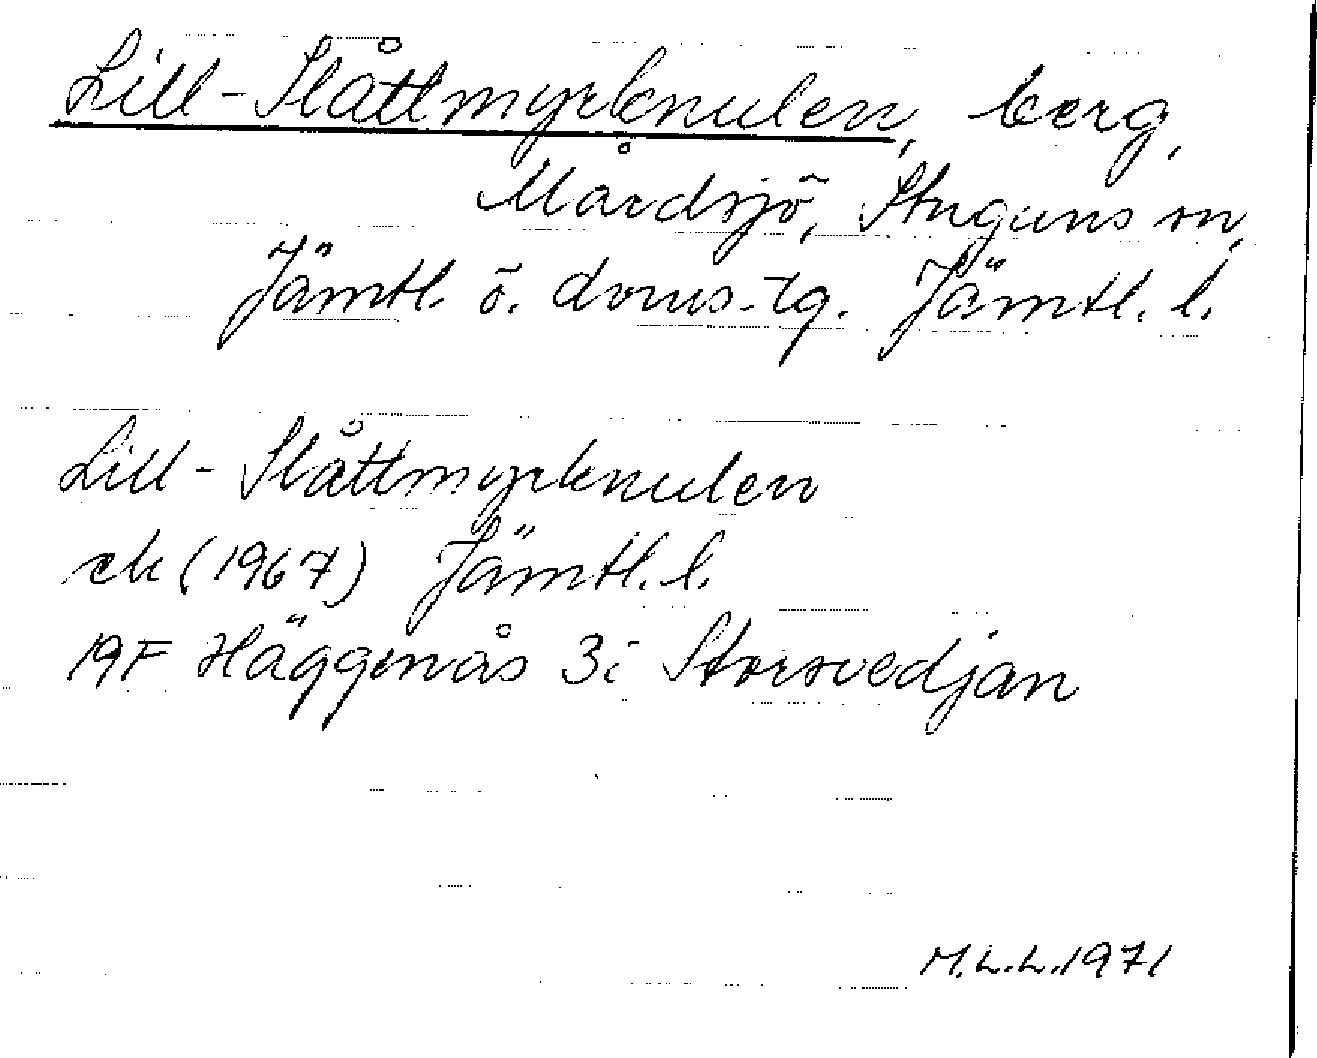 Lill-Slåttmyrknulen, berg,
Mårdsjö, Stuguns sn,
Jämtl. ö. doms.-tg. Jämtl. l.
Lill-Slåttmyrknulen
ek (1967) Jämtl. l.
19F Häggenås 3i Storsvedjan
M.L.L. 1971